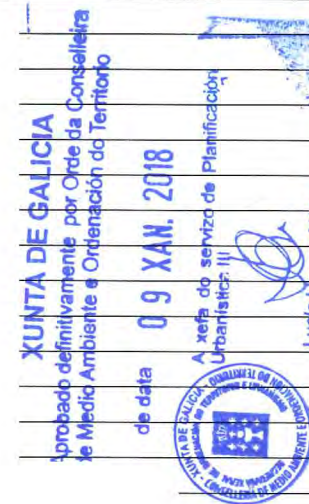 XUNTA DE GALICIA
Aprobado definitivamente por Orde da Conselleira
de Medio Ambiente e Ordenación do Territorio
de data 09 XAN. 2018
A xefa do servizo de Planificación
Urbanística III
XUNTA DE GALICIA
CONSELLERÍA DE MEDIO AMBIENTE E ORDENACIÓN DO TERRITORIO